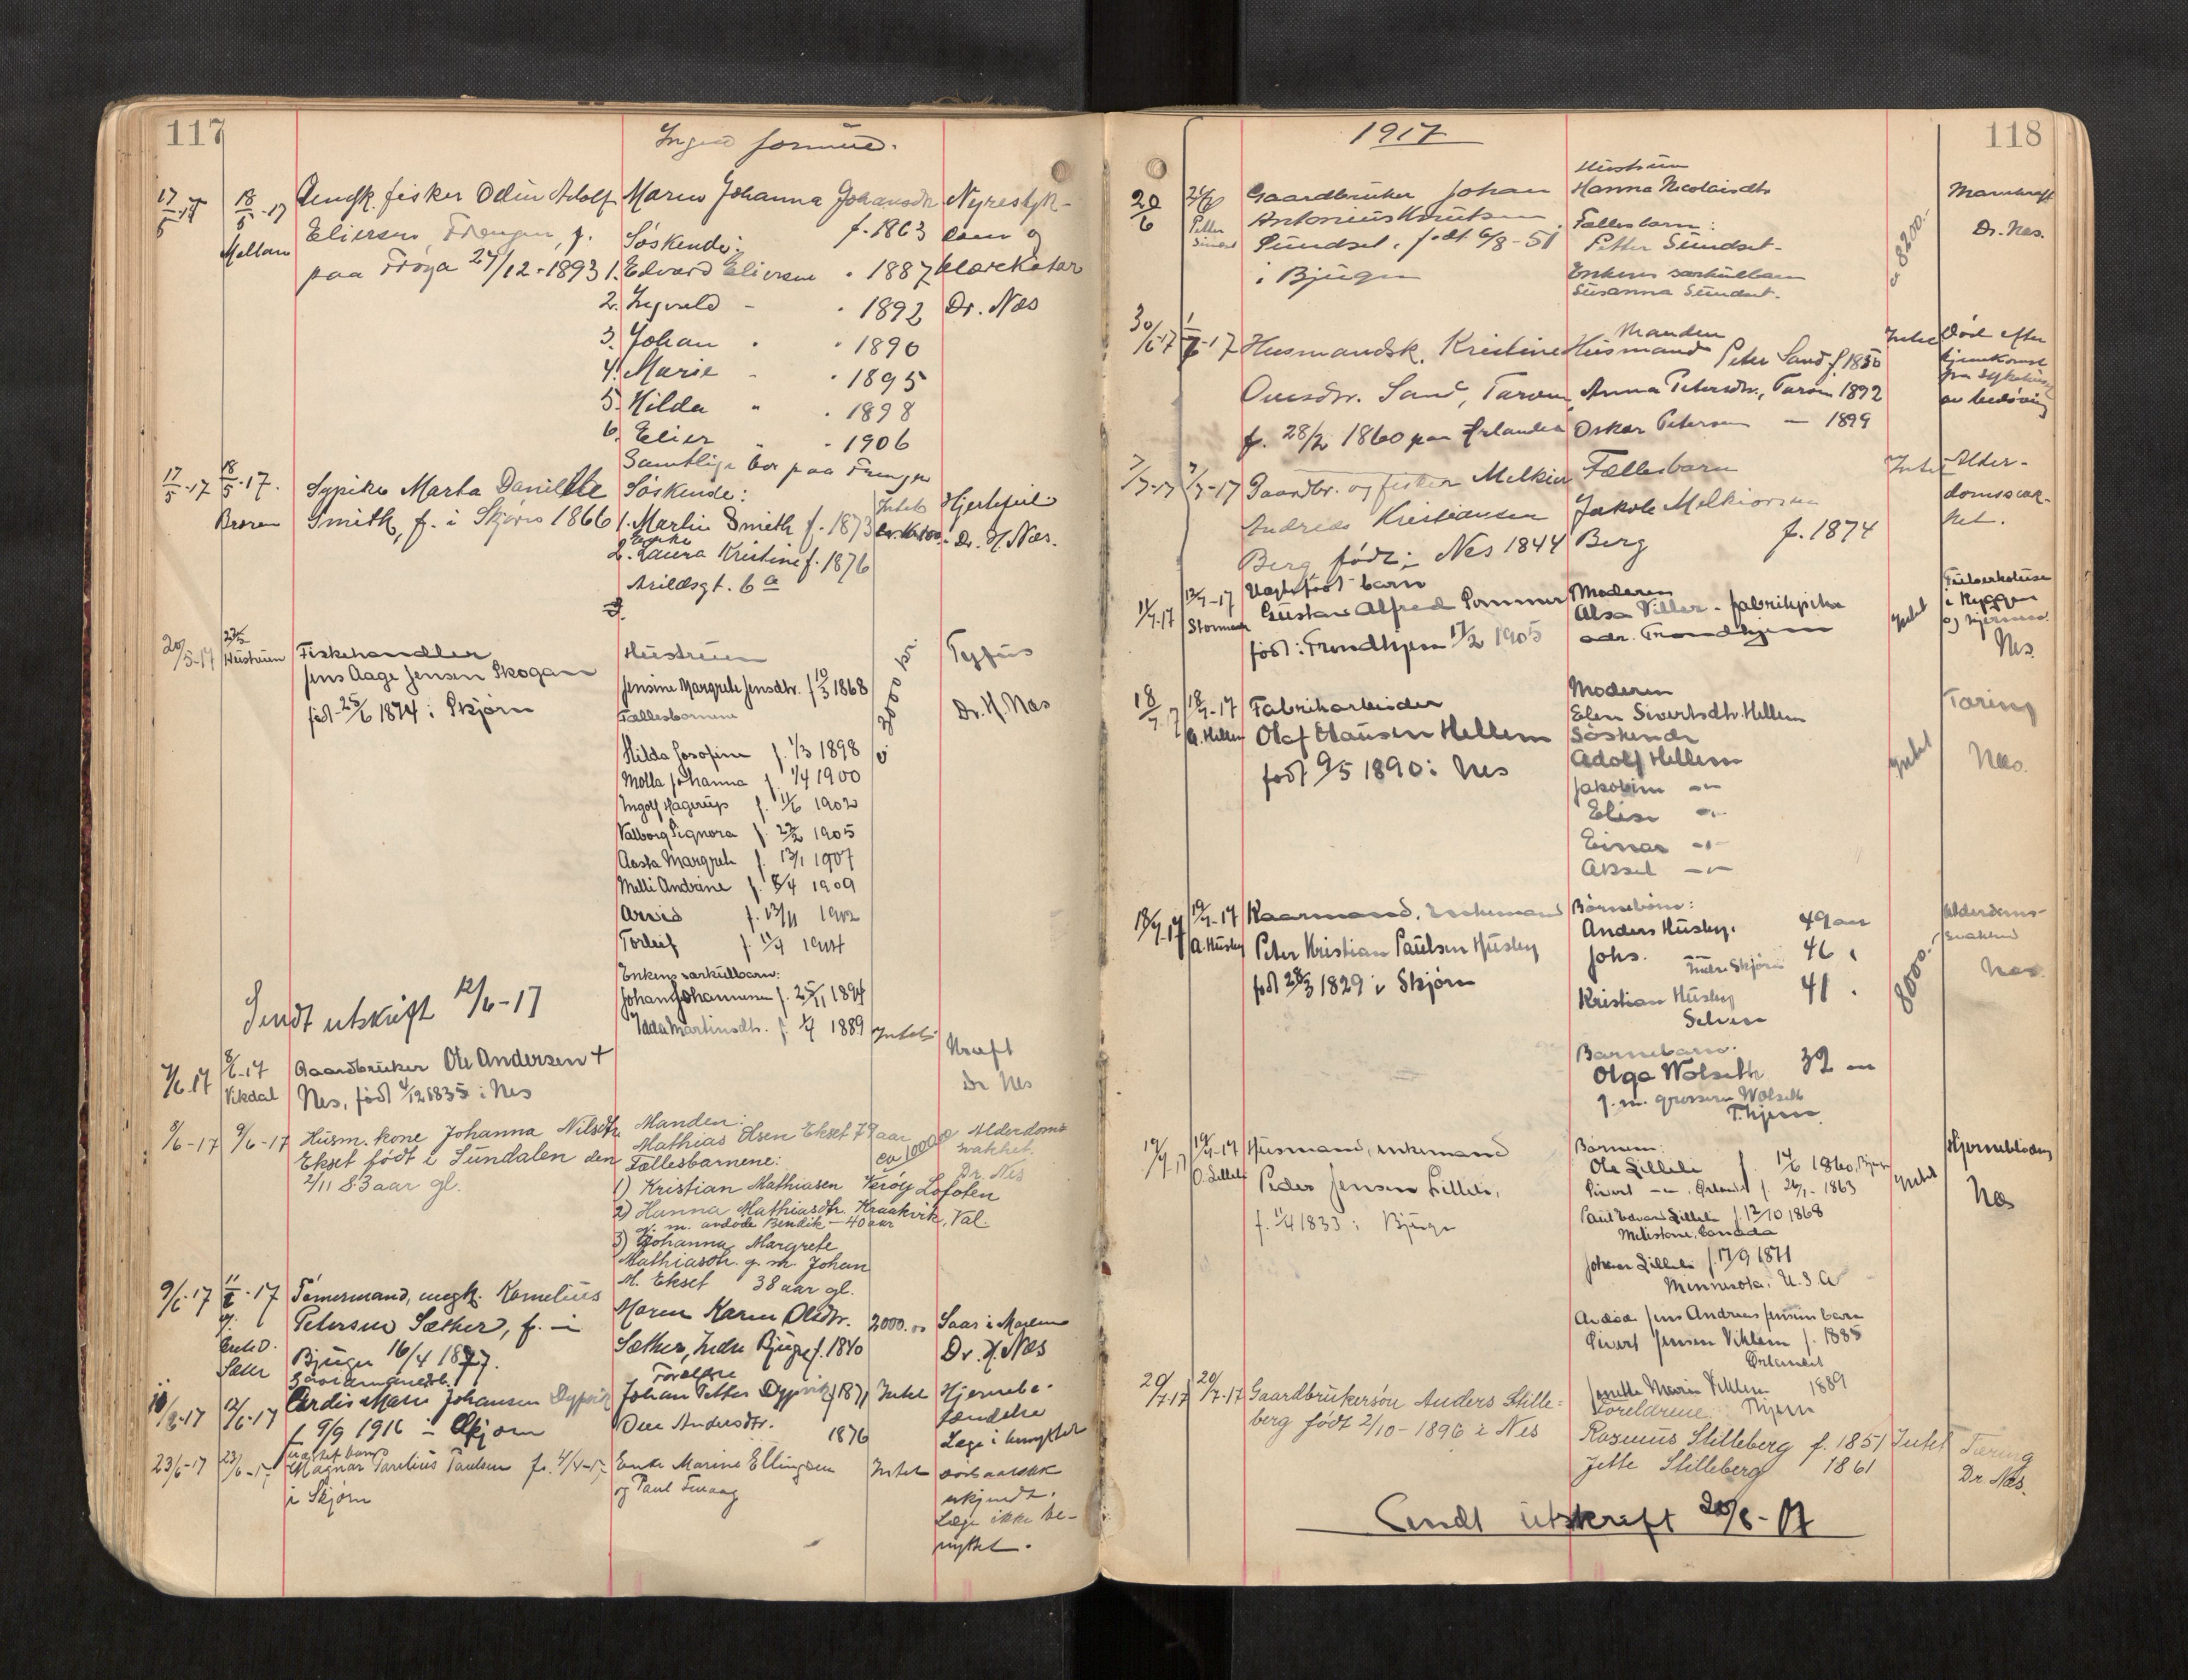 117
Ingen formue.
17/5-17
18/5-17
Ungk. fisker Odin Adolf
Maren Johanna Johansdtr
Nyrestyk-
Eliersen, f.
f. 1863
Søskende:
paa Frøya 29/12-1893
1. Edvard Eliersen 1887
2. Ingvald - 1892
Dr. Næs
3. Johan 1890
4. Marie - 1895
5. Hilda " 1898
6. Elier " - 1906
Samtlige bor paa
17/5-17
18/5-17.
Broren
Sypike Marta Danielle
Smith, f. i Skjørn 1866
Søskende:
1. Martin Smith f. 1873
Intet
Hjertefeil
Dr. H. Næs.
2. Laura Kristine f. 1876
Arildsgt. 6a
20/5-17
Hustruen
Fiskehandler
Jens Aage Jensen Skogan
født 25/6 1874 i Skjørn
Hustruen
Jensine Margrete Jensdtr. f 10/3 1868
Fællesbarnene
3000 kr
Tyfus
Dr. H. Næs
Hilda Josefine f. 1/3 1898
Molla Johanna f. 1/4 1900
Ingolf Hagerup f. 1/6 1902
Valborg Signora f. 22/2 1905
Aasta Margrete f. 13/1 1907
Milli Andrine f. 8/4 1909
Arvid f. 13/11 1912
Torleif f. 11/9 1914
Enkens særkulbarn:
Johan Johannesen f. 25/11 1894
Idda Martinsdtr. f. 1889
Intet
Sendt utskrift 12/6-17
7/6 17
8/6-17
Vikdal
Gaardbruker Ole Andersen +
Nes, født 4/12 1835 i Nes
Kræft
Dr Nes
8/6-17
9/6-17
Husm. kone Johanna Nilsdtr.
Ekset født i Sundalen den
2/11 83 aar gl.
Manden:
Mathias Olsen Ekset 79 aar
Fællesbarnene:
ca 1000
Alderdoms
svakhet.
Dr. Nes
1) Kristian Mathiasen Værøy Lofoten
2) Hanna Mathiasdtr. Kraakvik, Val.
g. m. avdøde Bendik - 40 aar
3) Johanna Margrete
Mathiasdtr. g. m. Johan
M. Ekset 38 aar gl.
9/6-17
11/6-17
Tømermand, ungk. Kornelius
Petersen Sæther, f. i
Bjugn 16/4 1877.
Maren Karen Olsdtr.
Sæther, Indre Bjugn f. 1840
2000.00
Saar i Maven
Dr. H. Næs
10/6-17
12/6-17
Ardis Marie Johansen Dypvik
f 9/9 1916 i Skjørn
Forældre
Johan Petter Dypvik f 1871
Andersdtr.
1876
Intet
Hjernebe-
tændelse
Læge i benyttet
23/6-17
23/6-17
Magnar Parelius Paulsen f. 4/4-17
i Skjørn
Enke Marine Ellingsen
og Paul
Intet
dødsaarsak
ukjendt.
Læge ikke be-
nyttet.
1917
118
20/6
Petter
Gaardbruker Johan
Antonius Knutsen
Sundset, født 6/8-51
i Bjugn
Hustruen
Hanna Nicolaisdtr
Fællesbarn:
Petter Sundset-
Enkens særkulbarn
Susanna Sundset.
8200.-
Dr. Næs.
30/6-17
1/7-17
Husmandsk. Kristine
Ovesdtr. Sand, Tarven
f. 28/2 1860 paa Ørlandet
Manden
Husmand Peter Sand f 1850
Anna Petersdtr., Tarven 1892
Oskar Petersen - 1899
Intet
Død efter
hjemkomst
fra sykehus
av
7/7-17
7/7-17
Gaardbr. og fisker Melkior
Andreas Kristiansen
Berg født i Nes 1844
Fællesbarn
Jakob Melkiorsen
Berg f. 1874
Intet
Alder-
domssvak-
het.
11/7-17
12/7-17
Gustav Alfred Pommer
født i Trondhjem 17/2 1905
Moderen
Alsa Viller - fabrikpike
adr. Trondhjem
Intet
Tuberkulose
i Ryggen
og hjernen.
Nes.
18/7-17
18/7-17
A. Hellem
Fabrikarbeider
Olaf Hansen Hellem
født 9/5 1890 i Nes
Moderen
Elen Sivertsdtr. Hellem
Søskende
Adolf Hellem
Jakobine -"-
Elise -"-
Einar -"-
Aksel -"-
Intet
Tæring
Næs.
18/7-17
19/7-17
A. Husby
Kaarmand, Enkemand
Peter Kristian Paulsen Husby
født 28/3 1829 i Skjørn
Børnebørn:
Anders Husby. 49 aar
Johs. -"- Indre Skjørn 46 "
Kristian Husby 41 "
Selven
8000.-
Alderdoms-
svakhed
Næs.
Barnebarn:
Olga Wolseth 32 -"-
g. m. grosserer Wolseth
T.hjem.
19/7 17
19/7-17
O. Lilleli
Husmand, enkemand
Peder Jensen Lilleli,
f. 11/4 1833 i Bjugn
Børnene:
Ole Lilleli f. 14/6 1860, Bjugn
Sivert -"- , Ørlandet f. 26/1- 1863
Paul Edvard Lilleli f. 12/10 1868
Milestone, Canada
Johan Lilleli f. 17/9 1871
Minnesota, U.S.A
Intet
Hjerneblødning
Næs
Avdøde Jens Andreas Jensens barn
Sivert Jensen Viklem f. 1885
Ørlandet
Josette Marie Viklem 1889
T.hjem
20/7-17
20/7-17
Gaardbrukersøn Anders Stille=
berg født 2/10-1896 i Nes
Foreldrene:
Rasmus Stilleberg f. 1851
Jette Stilleberg 1861
Intet
Tæring
Dr. Næs.
Sendt utskrift 20/8-17